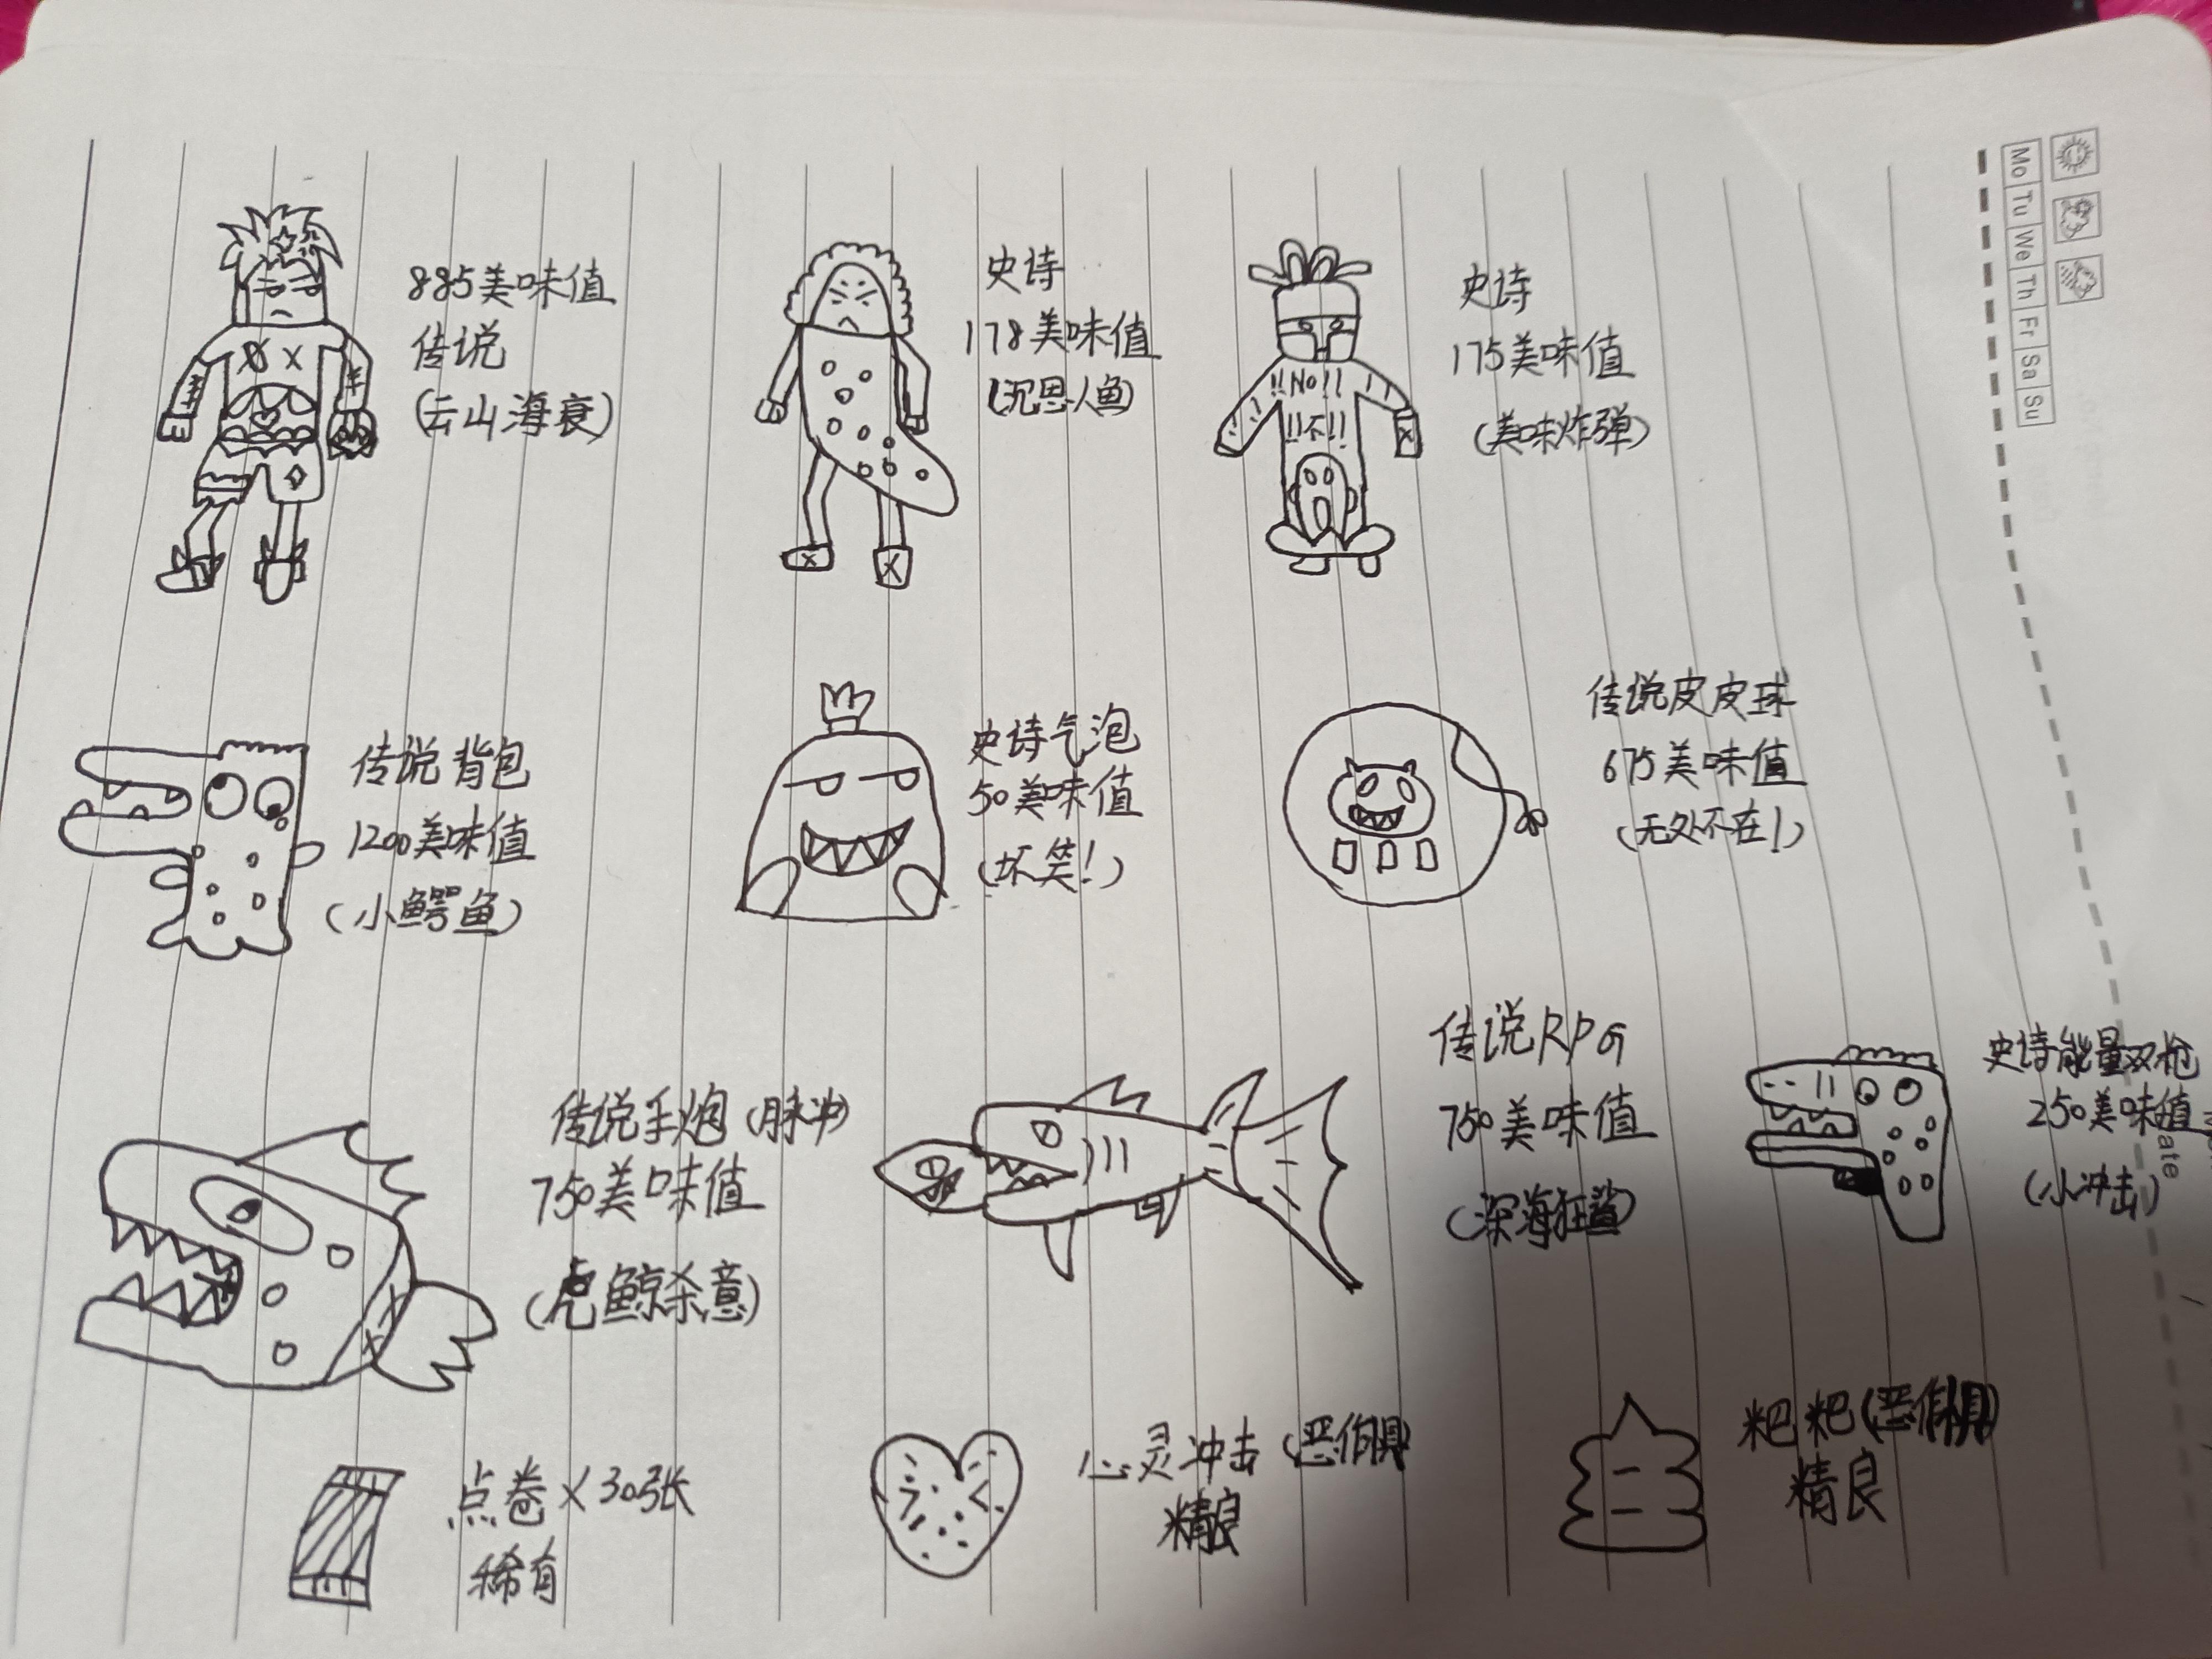 885美味值
传说
(云山海衰)
史诗
178美味值
(沉恩人鱼)
史诗
175美味值
(美味炸弹)
!!NO!!
!!不!!
传说背包
1200美味值
(小鳄鱼)
史诗气泡
50美味值
(坏笑!)
传说皮皮球
675美味值
(无处不在!)
传说手炮(脉冲)
750美味值
(虎鲸杀意)
传说RPG
750美味值
(深海狂鲨)
史诗能量双枪
250美味值
(小冲击)
点卷×30张
稀有
心灵冲击(恶作剧)
精良
粑粑(恶作剧)
精良
Mo Tu We Th Fr Sa Su
ate